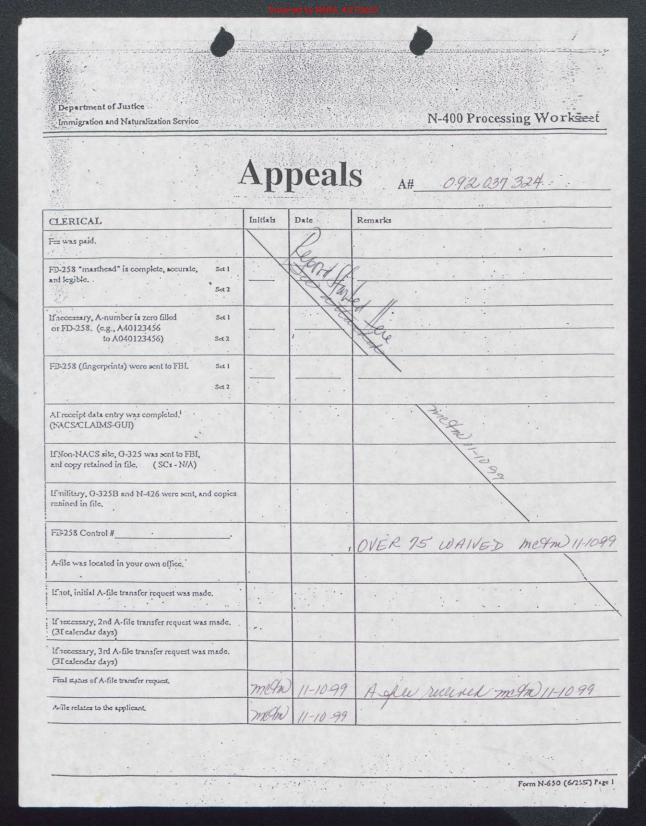 Department of Justice
Immigration and Naturalization Service
N-400 Processing Worksheet
Appeals A# 092 037 324
CLERICAL Initials Date Remarks
Fee was paid.
FD-258 "masthead" is complete, accurate, Set 1
and legible.
Set 2
If necessary, A-number is zero filled Set 1
or FD-258. (e.g., A40123456
to A040123456) Set 2
FD-258 (fingerprints) were sent to FBI. Set 1
Set 2
Report Started Here
All receipt data entry was completed.
(NACS/CLAIMS-GUI)
11-10-99
If Non-NACS site, G-325 was sent to FBI,
and copy retained in file. (SCs - N/A)
If military, G-325B and N-426 were sent, and copies
retained in file.
FD-258 Control #
OVER 75 WAIVED 11-10-99
A-file was located in your own office.
If not, initial A-file transfer request was made.
If necessary, 2nd A-file transfer request was made.
(31 calendar days)
If necessary, 3rd A-file transfer request was made.
(31 calendar days)
Final status of A-file transfer request. 11-10-99 A file received 11-10-99
A-file relates to the applicant. 11-10-99
Form N-650 Page 1